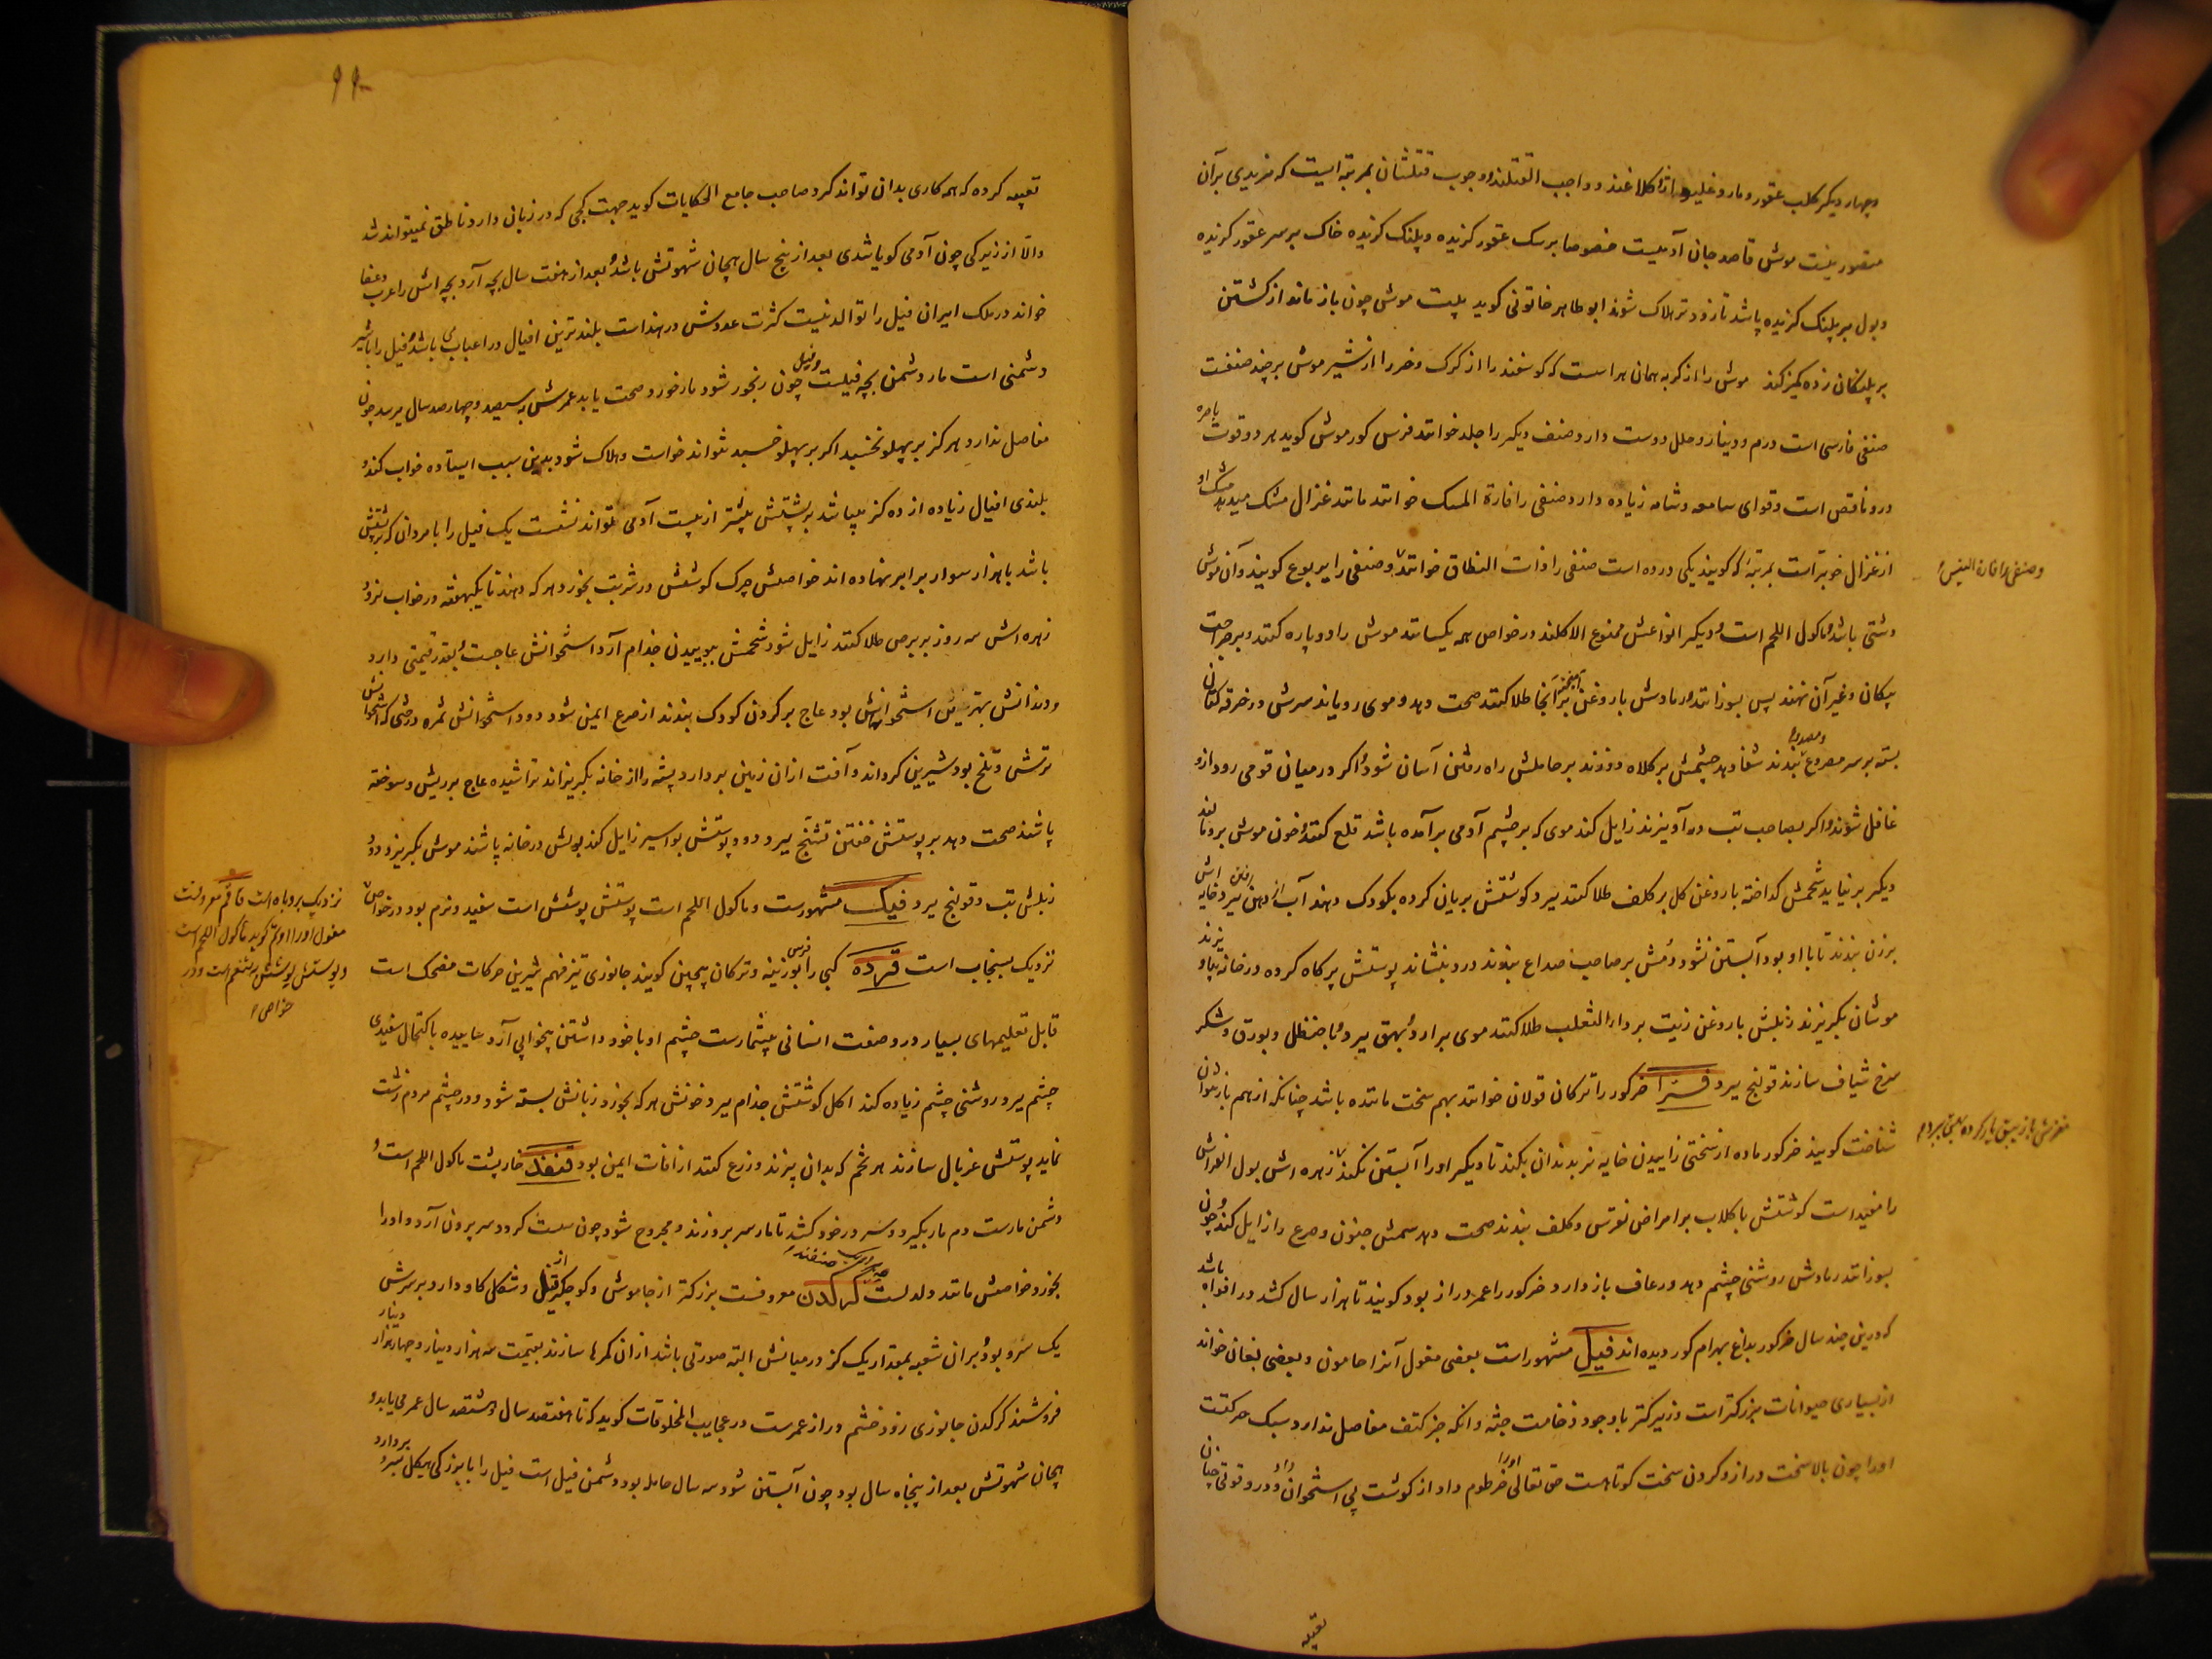 وچهار دیگر کلب عقور و مار و غلیواژ و کلاغند و واجب القتلند و وجوب قتلشان بمرتبه ایست که مزیدی برآن
متصور نیست موش قاصد جان آدمیست خصوصا برسک عقور کزیده و پلنک کزیده خاک برسر عقور کزیده
و بول بر پلنک کزیده پاشد تا زودتر هلاک شوند ابو طاهر خاتونی کوید پلیت موش چون باز ماند از کشتن
بر پلنکان زده کمیز کند موش را از کربه همان هراست که کوسفند را از کرک و خر را از شیر موش بر چند صنفست
صنفی فارسی است درم و دینار و حلل دوست دارد صنف دیگر را جلد خوانند فرس کور موش کوید هر دو قوت باصره
درو ناقص است و قوای سامعه و شامه زیاده دارد صنفی را فارة المسک خوانند مانند غزال مشک میدهد مشک او
از غزال خوبتر است بمرتبه که کویند یکی درده است صنفی را ذات النطاق خوانند و صنفی را یربوع کویند وآن موش
دشتی باشد و ماکول اللحم است و دیگر انواعش ممنوع الاکلند در خواص همه یکسانند موش را دو پاره کنند و بر جراحت
پیکان و غیر آن نهند پس بسوزانند و رمادش با روغن آمیخته برانجا طلا کنند صحت دهد و موی رویاند سرش در خرقه کتان
بسته بر سر مصروع بندند شفا دهد چشمش بر کلاه دوزند بر حاملش راه رفتن آسان شود و اکر در میان قومی رود ازو
غافل شوند و اکر بصاحب تب در آویزند زایل کند موی که بر چشم آدمی برآمده باشد قلع کنند و خون موش برو مالند
دیگر بر نیاید شحمش کداخته با روغن کل بر کلف طلا کنند ببرد کوشتش بریان کرده بکودک دهند آب رفتن از دهن ببرد خایه اش
بر زن بندند تا با او بود آبستن نشود دمش بر صاحب صداع بندند درد بنشاند پوستش پر کاه کرده در خانه بیاویزند
موشان بگریزند زبلش با روغن زیت بر داء الثعلب طلا کنند موی برآرد و بهق ببرد و با حنظل و بورق و شکر
سرخ شیاف سازند قولنج ببرد فرا خر کور را ترکان قولان خوانند بهم سخت ماننده باشد چنانکه از هم باز نتوان
شناخت کویند خر کور ماده از سختی زاییدن خایه نر بدندان بکند تا دیگر او را آبستن نکند زهره اش بول الفراش
را مفید است کوشتش با کلاب بر امراض نقرس و کلف بندند صحت دهد سمش جنون و صرع را زایل کند و چون
بسوزانند رمادش روشنی چشم دهد و رعاف باز دارد خر کور را عمر دراز بود کویند تا هزار سال کشد در افواه باشد
که درین چند سال خر کور بداغ بهرام کور دیده اند فیل مشهور است بعضی مغول آنرا حامون و بعضی نعان خواند
از بسیاری حیوانات بزرکتر است و زیرکتر باوجود ضخامت جثه و انکه جز کتف مفاصل ندارد سبک حرکتست
او را چون بالا سخت دراز و کردن سخت کوتاهست حق تعالی او را خرطوم داد از کوشت بی استخوان و درو قوتی چنان
تعبیه
و صنفی را فارة البیش
تعبیه کرده که همه کاری بدان تواند کرد صاحب جامع الحکایات کوید جهت کجی که در زبان دارد ناطق نمیتواند شد
والا از زیرکی چون آدمی کویا شدی بعد از پنج سال هیجان شهوتش باشد و بعد از هفت سال بچه آرد بچه اش را عرب دغفا
خواند در ملک ایران فیل را توالد نیست کثرت عددش در هند است بلندترین افیال در اعباب می باشد و فیل را با شیر
دشمنی است مار دشمن بچه فیلست و فیل چون رنجور شود مار خورد صحت یابد عمرش به سیصد و چهار صد سال میرسد چون
مفاصل ندارد هرکز بر پهلو نخسبد اکر بر پهلو خسبد نتواند خواست و هلاک شود بدین سبب ایستاده خواب کند و
بلندی افیال زیاده از ده کز میباشد بر پشتش بیشتر از بیست آدمی تواند نشست یک فیل را با مردان که بر پشتش
باشد با هزار سوار برابر نهاده اند خواصش چرک کوشش در شربت بخورد هر که دهند تا یکهفته در خواب نرود
زهره اش سه روز بر برص طلا کنند زایل شود شحمش ببوییدن جذام آرد استخوانش عاجست و بقدر قیمتی دارد
و دندانش بهترین استخوانهاش بود عاج بر کردن کودک بندند از صرع ایمن شود دود استخوانش ثمره درختی که استخوانش
ترش و تلخ بود شیرین کرداند و آفت از آن زمین بر دارد پشه را از خانه بگریزاند تراشیده عاج بر ریش و سوخته
پاشند صحت دهد بر پوستش خفتن تشنج ببرد و دود پوستش بواسیر زایل کند بولش در خانه پاشند موش بگریزد دود
زبلش تب و قولنج ببرد فنک مشهورست و ماکول اللحم است پوستش پوشش است سفید و نرم بود در خواص
نزدیک بسنجاب است قرده کپی را فرس بوزینه و ترکان پیچین کویند جانوری تیز فهم شیرین حرکات مضحک است
قابل تعلیمهای بسیار و درو صفت انسانی بیشمارست چشم او با خود داشتن بیخوابی آرد ساییده باکتحال سفیدی
چشم ببرد و روشنی چشم زیاده کند اکل کوشتش جذام ببرد خونش هر که بخورد زبانش بسته شود و در چشم مردم زشت
نماید پوستش غربال سازند هر تخم که بدان بیزند و زرع کنند از افات ایمن بود قنفذ خارپشت ماکول اللحم است و
دشمن مارست دم مار بگیرد و سر در خود کشد تا مار سر برو زند و مجروح شود چون سست کردد سر بیرون آرد و او را
بخورد خواصش مانند دلدلست کرکدن معروفست بزرکتر از جاموش و کوچکتر از فیل و شکل کاو دارد و بر سرش
یک سرو بود و بران شعبه بمقدار یک کز در میانش البته صورتی باشد ازان کمرها سازند بقیمت سه هزار دینار و چهار هزار دینار
فروشند کرکدن جانوری زود خشم و دراز عمرست در عجایب المخلوقات کوید که تا هفتصد سال و هشتصد سال عمر می یابد و
هیجان شهوتش بعد از پنجاه سال بود چون آبستن شود سه سال حامله بود و دشمن فیل است فیل را با بزرکی هیکل بسرو بر دارد